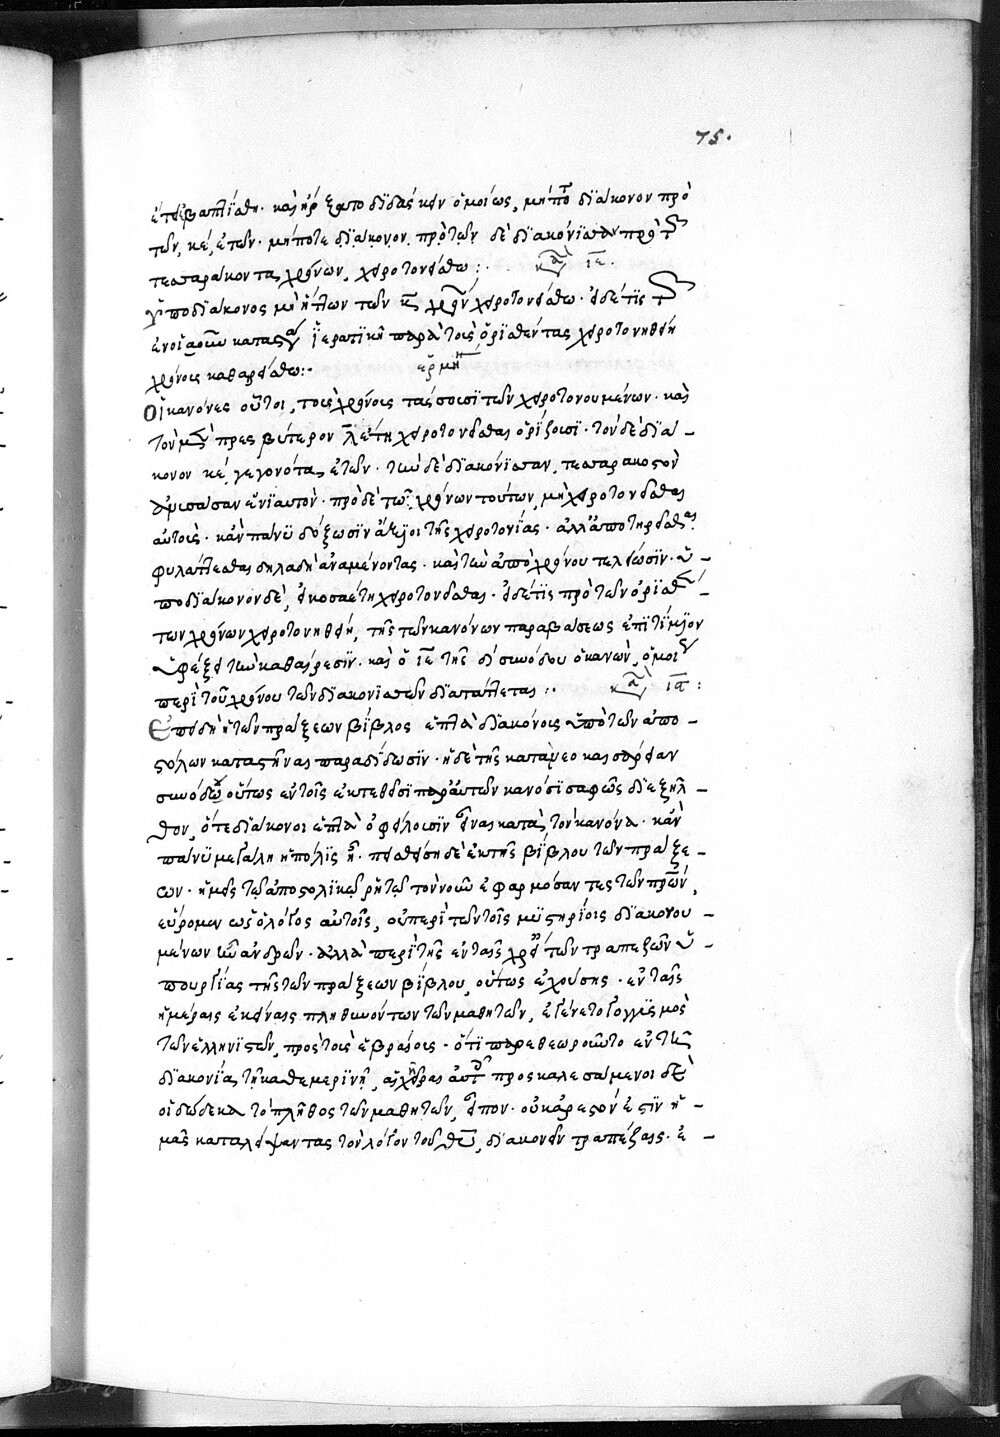 75.
ἐπεβαπτίσθη· καὶ ἤρξατο διδάσκειν ὁμοίως, μήποτε διάκονον πρὸ
τῶν, κέ, ἐτῶν· μήποτε διάκονον πρὸ τῶν δὲ διακόνισσαν πρὸ τ
τεσσαράκοντα χρόνων, χειροτονείσθω:· κα ιε.
ὑποδιάκονος μὴ ἧττων τῶν κ χρόν χειροτονείσθω· εἰ δέ τις τ
ἐν οἱαοῦν καταστ ἱερατικῇ παρὰ τοὺς ὁρισθέντας χειροτονηθείη
χρόνους καθαιρείσθω:· ἑρμη
Οἱ κανόνες οὗτοι, τοὺς χρόνους τάσσουσι τῶν χειροτονουμένων· καὶ
τὸν μὲν πρεσβύτερον λ ἔτη χειροτονεῖσθαι ὁρίζουσι· τὸν δὲ διά-
κονον κέ, γεγονότα, ἐτῶν· τὴν δὲ διακόνισσαν, τεσσαρακοστὸν
ἀμείψασαν ἐνιαυτὸν· πρὸ δὲ τῶν χρόνων τούτων, μὴ χειροτονεῖσθαι
αὐτοὺς· κἂν πάνυ δόξωσιν ἄξιοι τῆς χειροτονίας· ἀλλὰ ἀποτηρεῖσθαι
φυλάττεσθαι δηλαδὴ ἀναμένοντας· καὶ τὴν ἀπὸ χρόνου τελείωσιν· ὑ-
ποδιάκονον δὲ, εἰκοσαέτη χειροτονεῖσθαι· εἰ δέ τις πρὸ τῶν ὁρισθέν-
των χρόνων χειροτονηθείη, τῆς τῶν κανόνων παραβάσεως ἐπιτίμιον
ὑφέξει τὴν καθαίρεσιν· καὶ ὁ ιε τῆς δὲ συνόδου ὁ κανὼν, ὁμοί
περὶ τοῦ χρόνου τῶν διακονισσῶν διατάττεται:· κα ια:
Ἐπειδὴ ἡ τῶν πράξεων βίβλος ἑπτὰ διακόνους ὑπὸ τῶν ἀπο-
στόλων καταστῆναι παραδίδωσιν· ἡ δὲ τῆς κατὰ νεοκαισάρειαν
συνόδου οὕτως ἐν τοῖς ἐκτεθεῖσι παρ' αὐτῶν κανόσι σαφῶς διεξηλ-
θον, ὅτε διάκονοι ἑπτὰ ὀφείλουσιν εἶναι κατὰ τὸν κανόνα· κἂν
πάνυ μεγάλη ἡ πόλις ᾖ· πεισθείση δὲ ἐκ τῆς βίβλου τῶν πράξε-
ων· ἡμεῖς τῷ ἀποστολικῷ ῥητῷ τὸν νοῦν ἐφαρμόσαντες τῶν πρῶν,
εὕρομεν ὡς ὁ λόγος αὐτοῖς, οὐ περὶ τῶν τοῖς μυστηρίοις διακονου-
μένων ἦν ἀνδρῶν· ἀλλὰ περὶ τῆς ἐν ταῖς χρ τῶν τραπεζῶν ὑ-
πουργίας τῆς τῶν πράξεων βίβλου, οὕτως ἐχούσης· ἐν ταῖς
ἡμέραις ἐκείναις πληθυνόντων τῶν μαθητῶν, ἐγένετο γογγυσμὸς
τῶν ἑλληνιστῶν, πρὸς τοὺς ἑβραίους· ὅτι παρεθεωροῦντο ἐν τῇ
διακονίᾳ τῇ καθημερινῇ, αἱ χῆραι αὐτῶν προσκαλεσάμενοι δὲ
οἱ δώδεκα τὸ πλῆθος τῶν μαθητῶν, εἶπον· οὐκ ἀρεστόν ἐστιν ἡ-
μᾶς καταλείψαντας τὸν λόγον τοῦ θεοῦ, διακονεῖν τραπέζαις· ἐ-